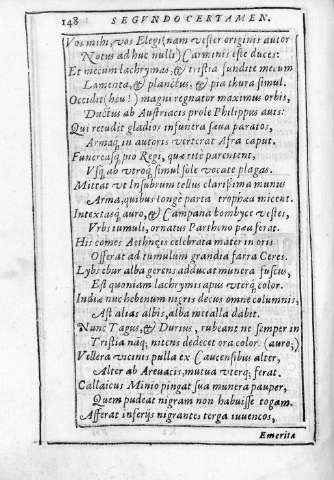 148 SEGVNDO CERTAMEN.
Vos mihi, vos Elegi (nam vester originis autor
Notus ad huc nulli) Carminis este duces:
Et mecum lachrymas, & tristia fundite mecum
Lamenta, & planctus, & pia thura simul.
Occidit (heu!) magni regnator maximus orbis,
Ductus ab Austriacis prole Philippus auis:
Qui retudit gladios infuntra seua paratos,
Armaq; in autoris verterat Afra caput.
Funereasq; pio Regi, quæ rite parentent,
Vsq; ab vtroq; simul sole vocate plagas.
Mittat vt Insubrum tellus clarissima munus
Arma, quibus longè parta trophæa micent.
Intextasq; auro, & Campana bombyce vestes,
Vrbs tumuli, ornatus Parthenopæa ferat.
His comes Aethnæis celebrata mater in oris
Offerat ad tumulum grandia farra Ceres.
Lybs ebur alba gerens adducat munera fuscus,
Est quoniam lachrymis apus vterq; color.
Indiæ nec hebenum nigris decus omne columnis,
Ast alias albis, alba metalla dabit.
Nunc Tagus, & Durius, rubeant ne semper in
Tristia näq; nitens dedecet ora color. (auro;)
Vellera vicinis pulla ex Caucensibus alter,
Alter ab Areuacis, mutua vterq; ferat.
Callaicus Minio pingat sua munera pauper,
Quem pudeat nigram non habuisse togam.
Afferat inferijs nigrantes terga iuuencos,
Emerita